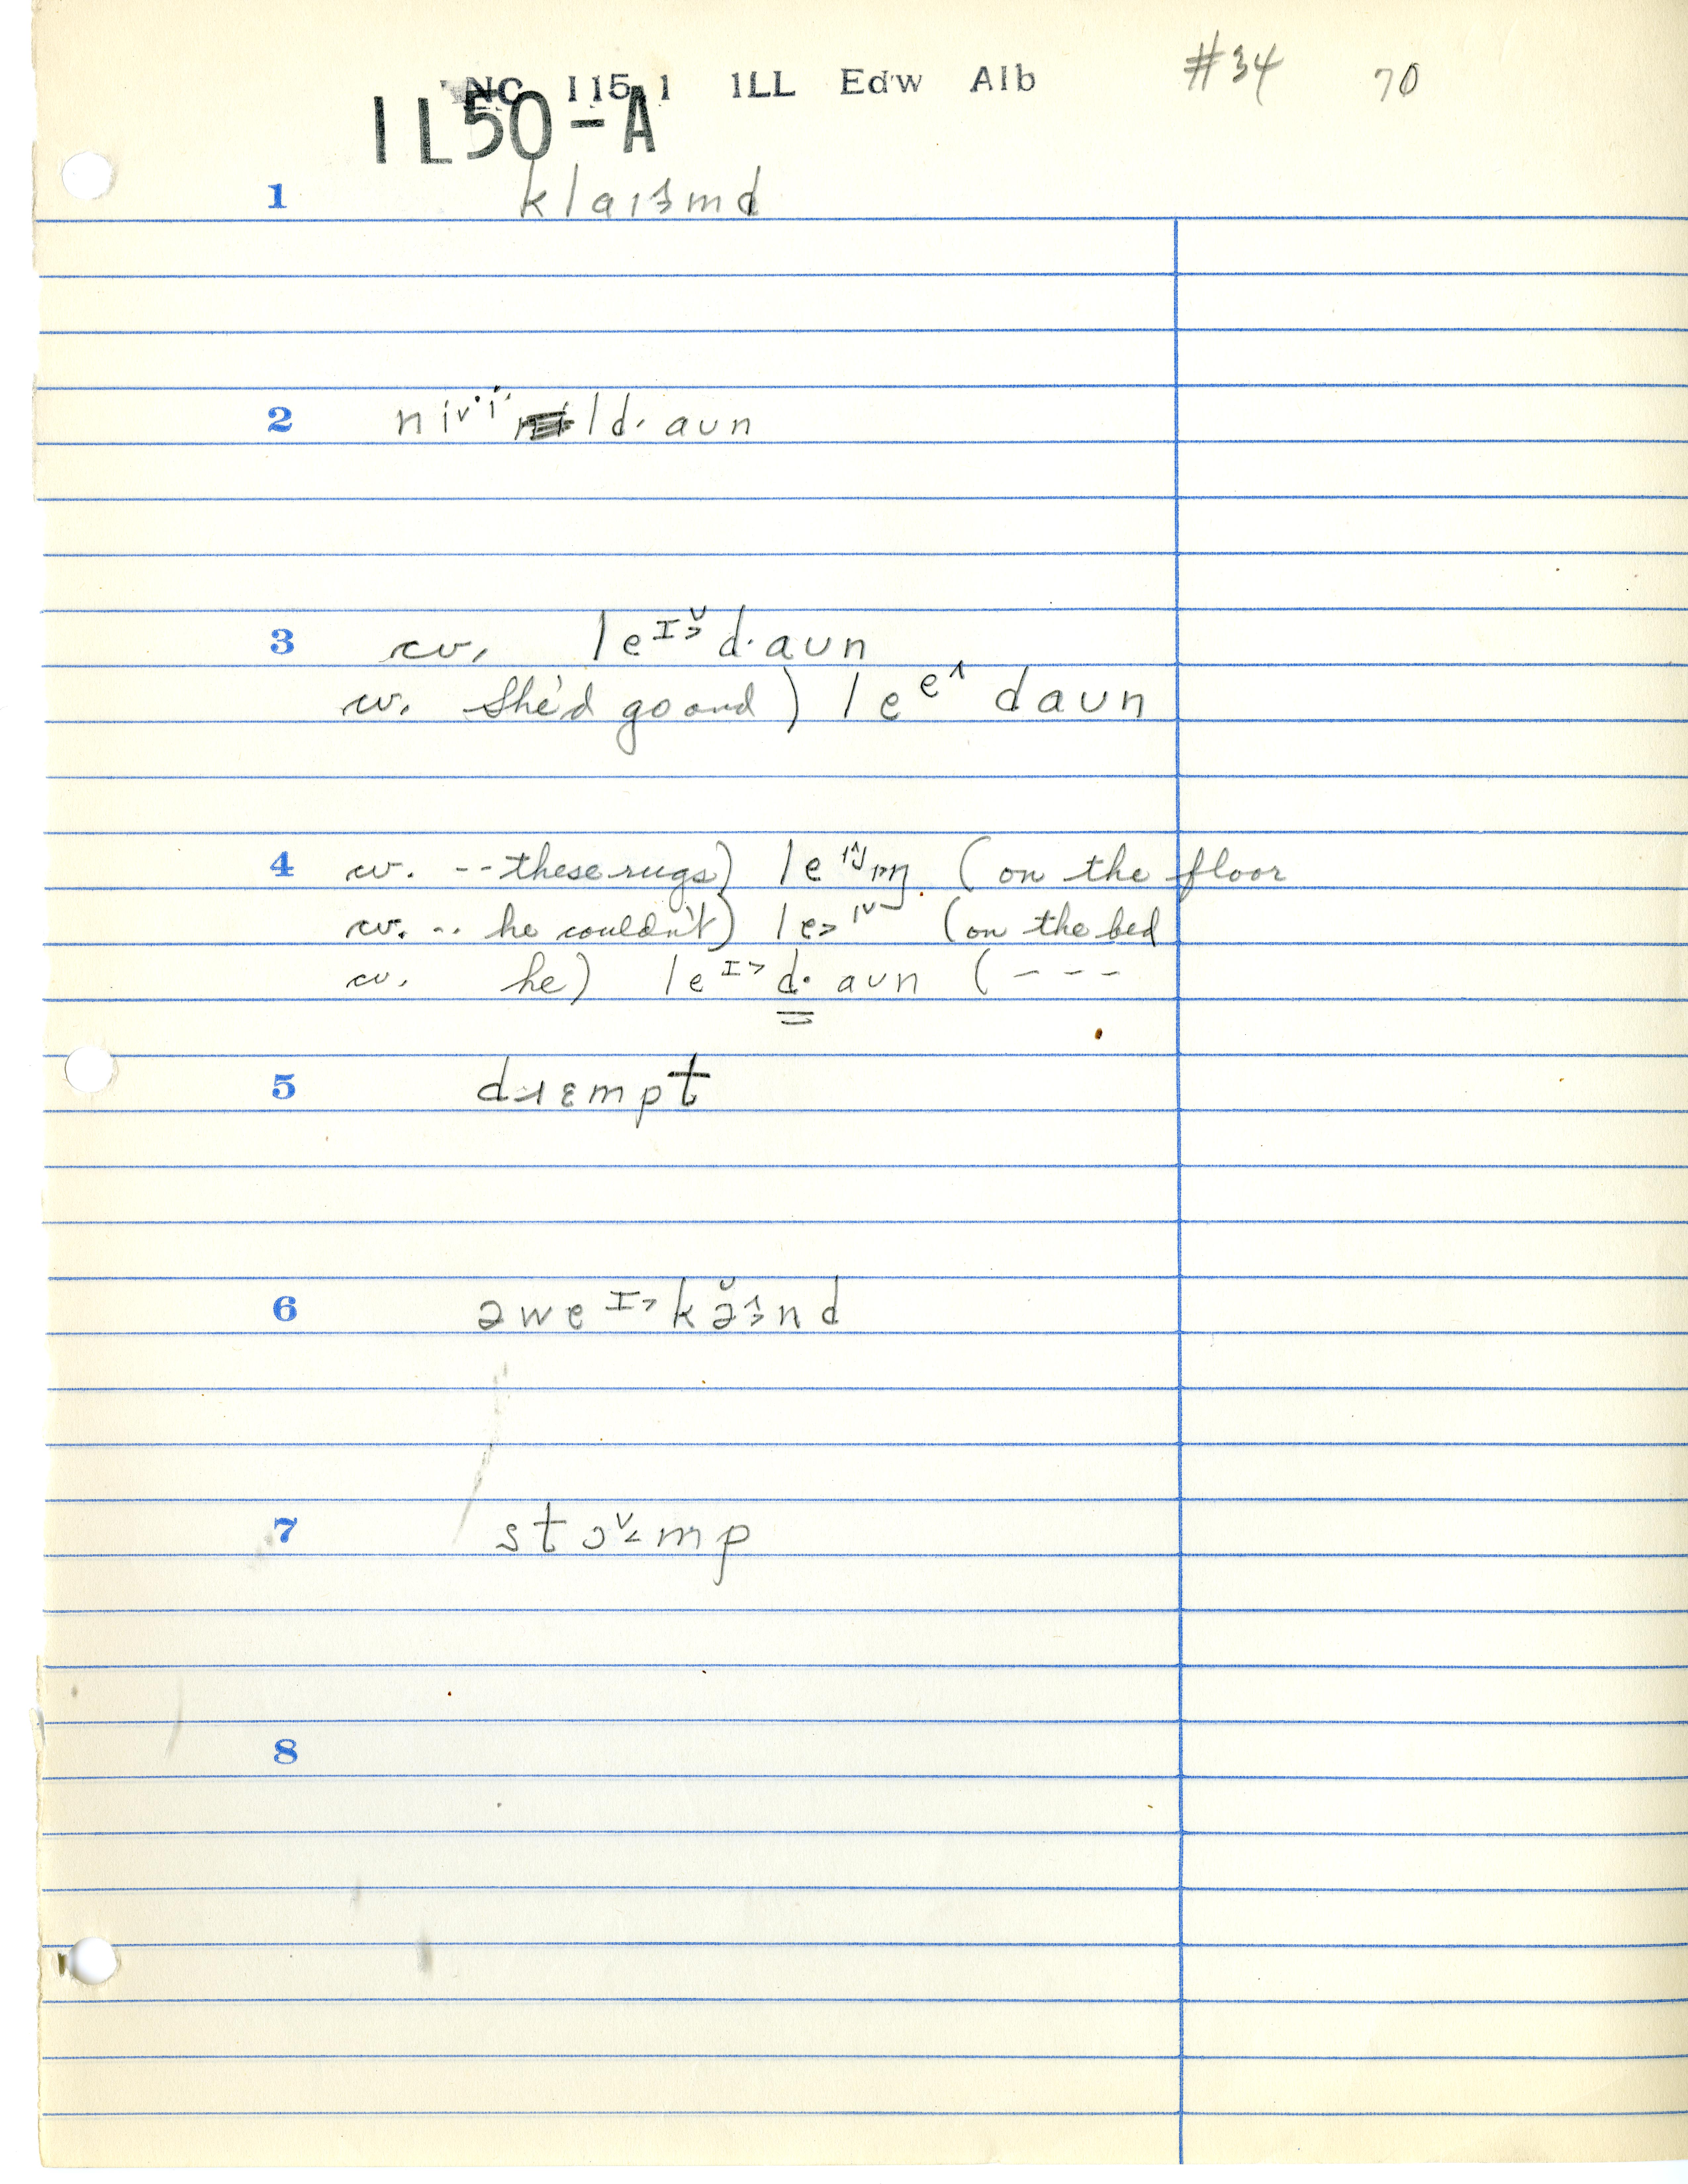 NC 115.1 ILL Edw Alb #34 70
IL50-A
1 klaɪɜmd
2 niᵛ·ⁱ· ld· aun
3 cv. leᴵ˃̌ d·aun
cv. She'd go and) leᵉ^ daun
4 cv. --these rugs) (on the floor
cv. .. he couldn't) le˃ᴵᵛ (on the bed
cv. he) leᴵ˃ d· aun (---
5 dɹɛmpt
6 əweᴵ˃kə̌ɜ^nd
7 stɔᵛ˂mp
8